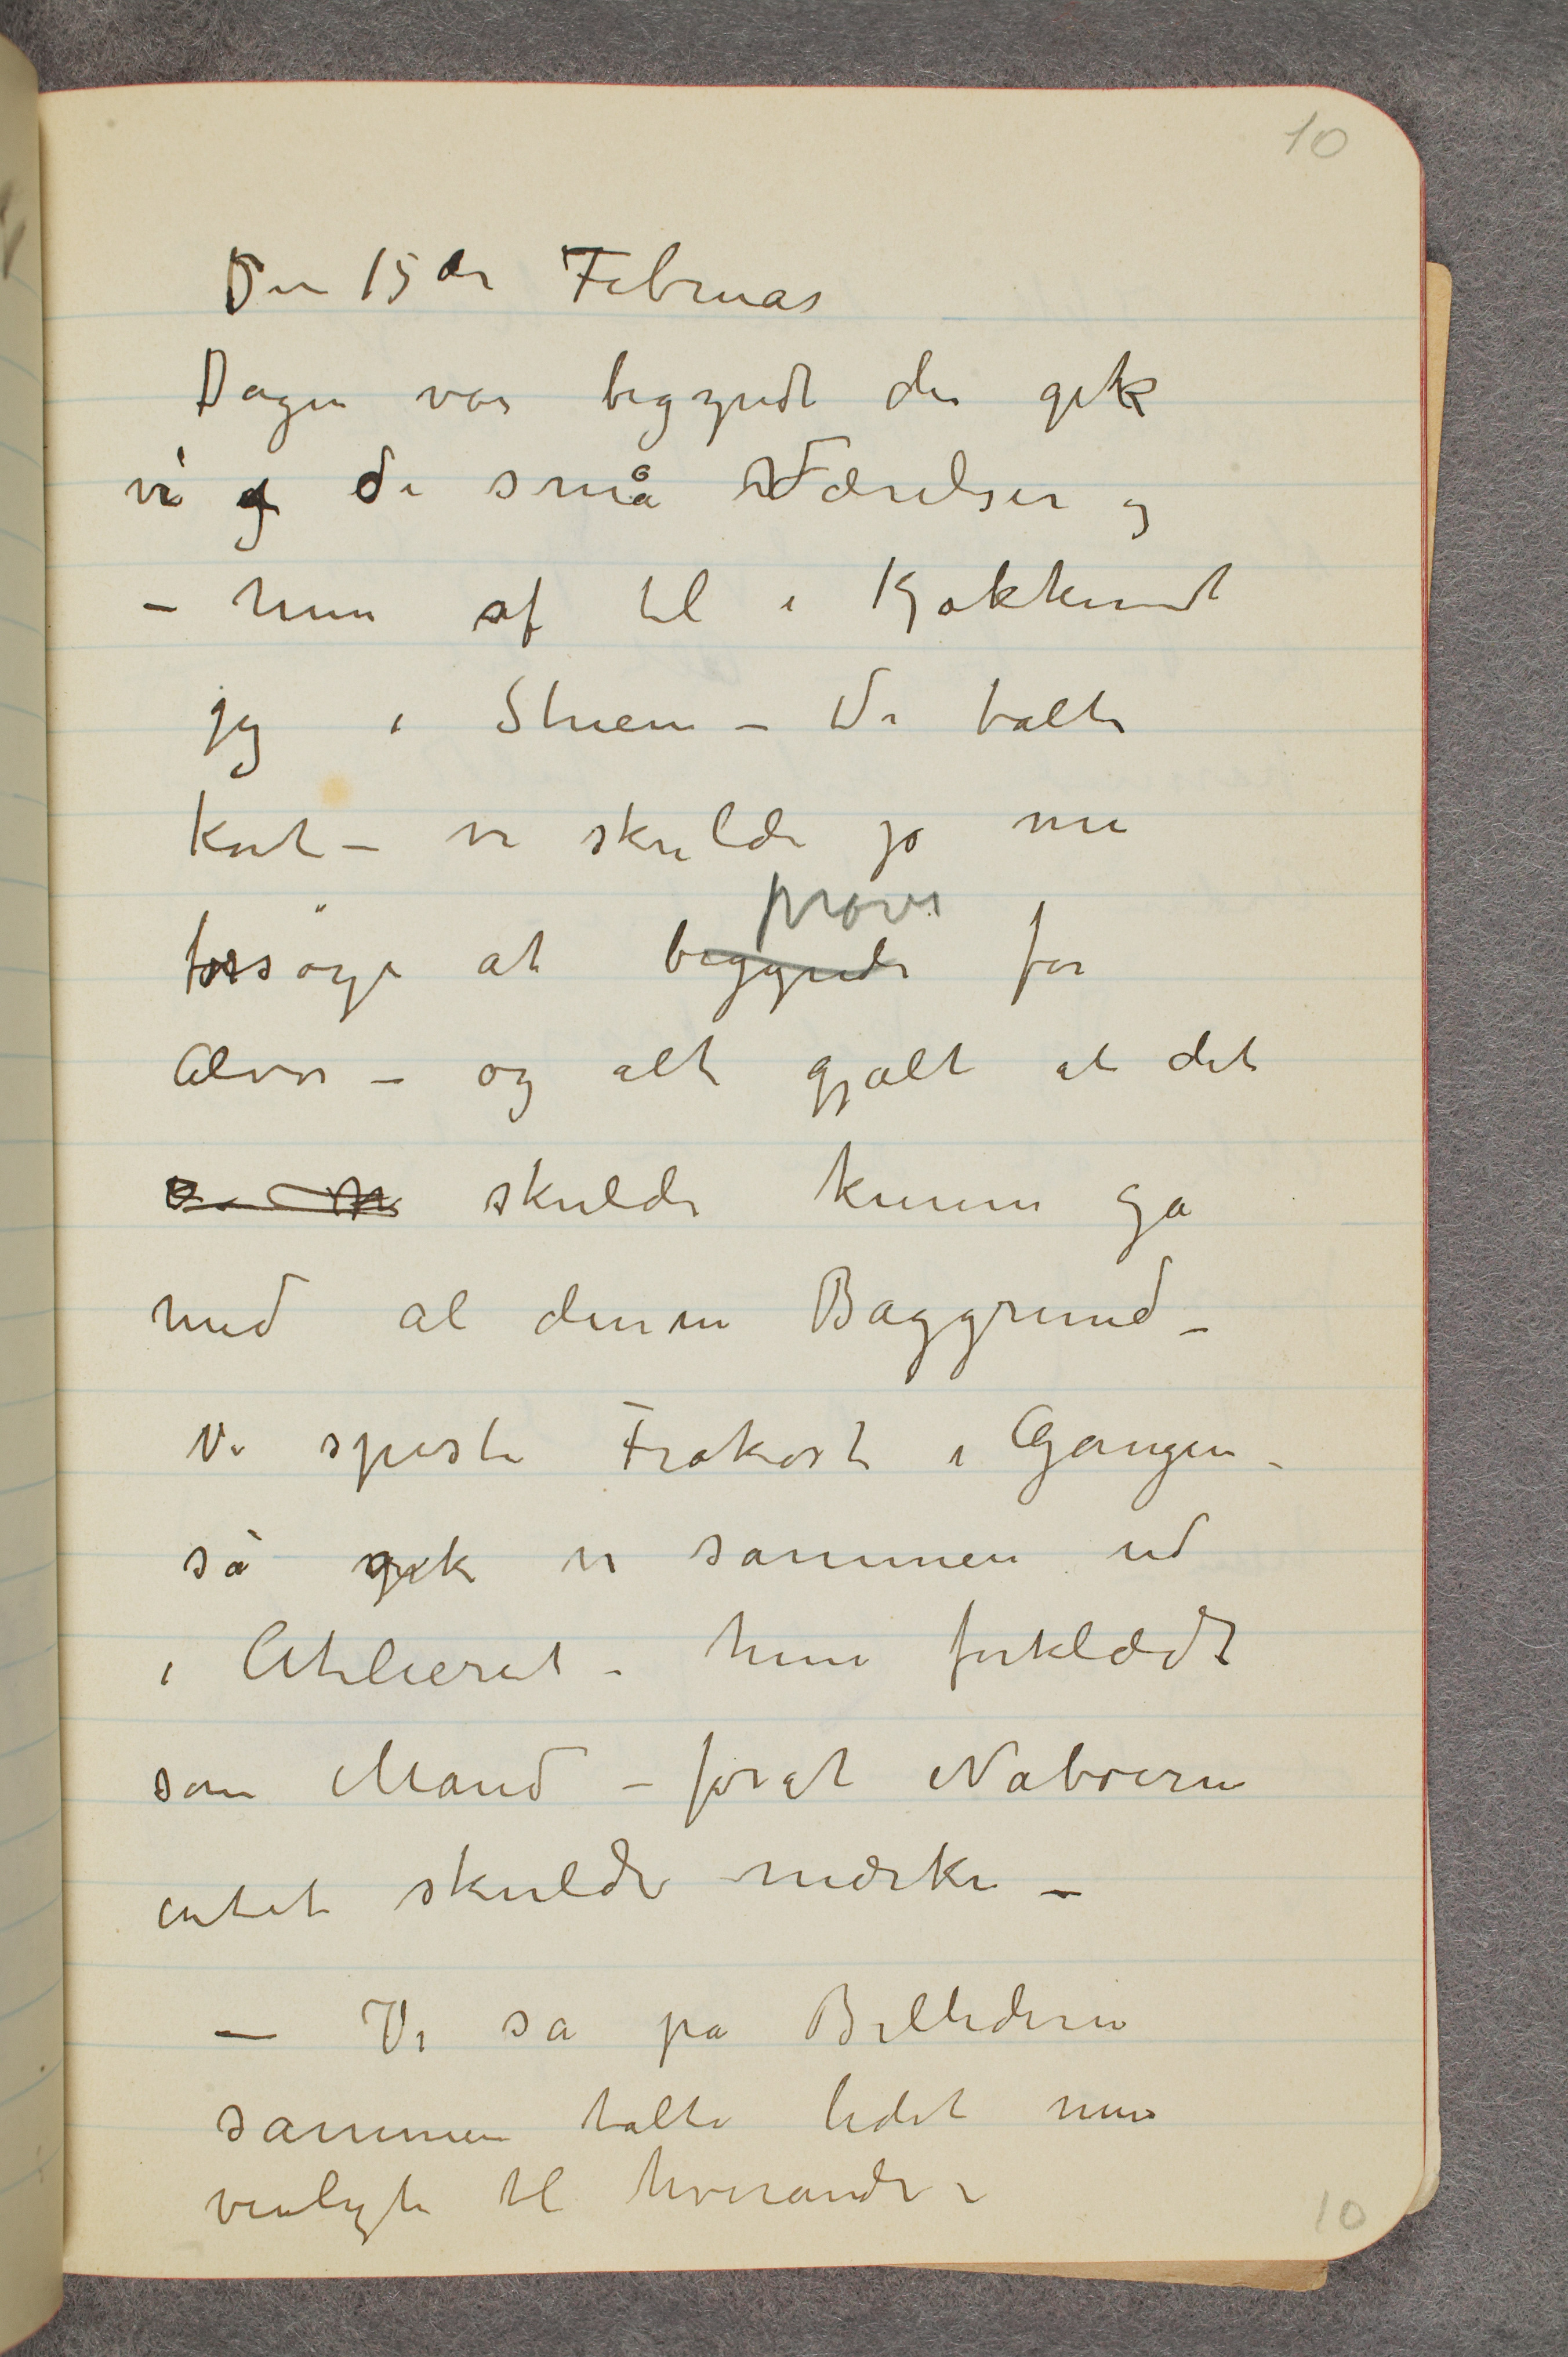 10
Den 15de Februar
Dagen var begyndt der gik
vi og de små Værelser og
– hun af til i Kjøkkenet
jeg i Stuen – Vi talte
kort – vi skulde jo nu
prøve
forsöge at begynde for
Alvor – og alt gjalt at det
skulde kunne gå
med al denne Baggrund –
Vi spiste Frokost i Gangen –
så gik vi sammen ud
i Atelieret – hun forklædt
som Mand – forat Naboerne
intet skulde mærke –
– Vi så på Billederne
sammen talte lidet men
venligt til hverandre
10